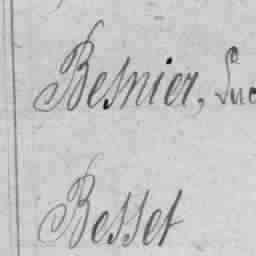 Besnier, Luc
Besset